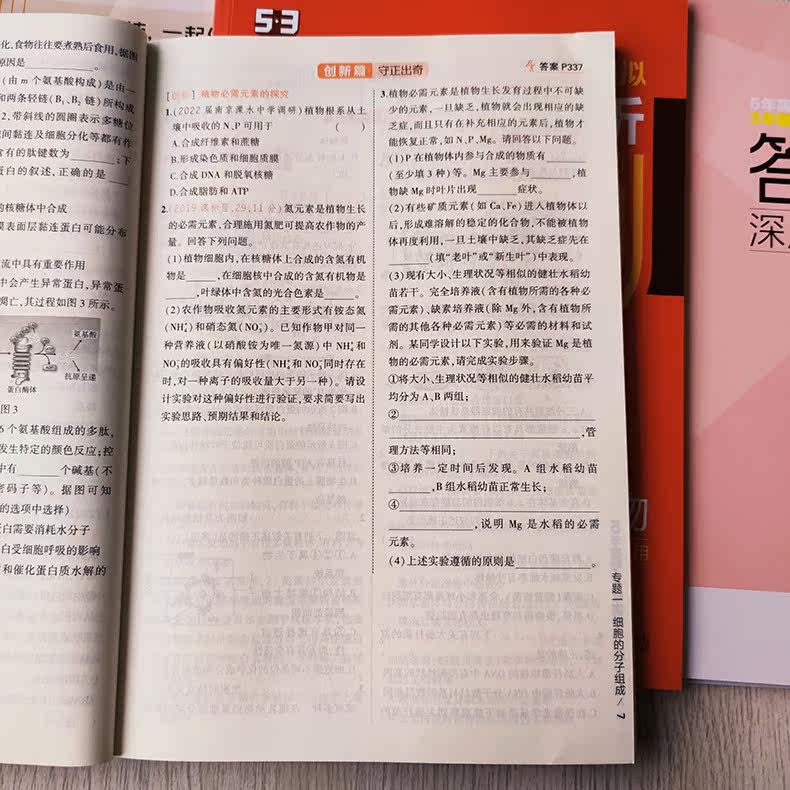 5·3
化,食物往往要煮熟后食用,据图
原因是
(由 m 个氨基酸构成)是由一
和两条轻链(B₁、B₂ 链)所构成
2,带斜线的圆圈表示多糖位
间黏连及细胞分化等都有作
含有的肽键数为________;下
蛋白的叙述,正确的是____
的核糖体中合成
膜表面层黏连蛋白可能分布
流中具有重要作用
中会产生异常蛋白,异常蛋
凋亡,其过程如图 3 所示。
氨基酸
蛋白酶体
抗原呈递
图 3
6 个氨基酸组成的多肽,
发生特定的颜色反应;控
中有______个碱基(不
密码子等)。据图可知
的选项中选择)
蛋白需要消耗水分子
白受细胞呼吸的影响
和催化蛋白质水解的
创新篇 守正出奇
答案 P337
植物必需元素的探究
1.(2022 届南京溧水中学调研)植物根系从土
壤中吸收的 N、P 可用于 ( )
A.合成纤维素和蔗糖
B.形成染色质和细胞质膜
C.合成 DNA 和脱氧核糖
D.合成脂肪和 ATP
2.(2019 课标Ⅱ,29,11 分)氮元素是植物生长
的必需元素,合理施用氮肥可提高农作物的产
量。回答下列问题。
(1)植物细胞内,在核糖体上合成的含氮有机
物是____,在细胞核中合成的含氮有机物是
____,叶绿体中含氮的光合色素是____。
(2)农作物吸收氮元素的主要形式有铵态氮
(NH₄⁺)和硝态氮(NO₃⁻)。已知作物甲对同一
种营养液(以硝酸铵为唯一氮源)中 NH₄⁺和
NO₃⁻的吸收具有偏好性(NH₄⁺和 NO₃⁻同时存在
时,对一种离子的吸收量大于另一种)。请设
计实验对这种偏好性进行验证,要求简要写出
实验思路、预期结果和结论。
3.植物必需元素是植物生长发育过程中不可缺
少的元素,一旦缺乏,植物就会出现相应的缺
乏症,而且只有在补充相应的元素后,植物才
能恢复正常,如 N、P、Mg。请回答以下问题。
(1)P 在植物体内参与合成的物质有____
(至少填 3 种)等。Mg 主要参与____,植
物缺 Mg 时叶片出现____症状。
(2)有些矿质元素(如 Ca、Fe)进入植物体以
后,形成难溶解的稳定的化合物,不能被植物
体再度利用,一旦土壤中缺乏,其缺乏症先在
____(填“老叶”或“新生叶”)中表现。
(3)现有大小、生理状况等相似的健壮水稻幼
苗若干。完全培养液(含有植物所需的各种必
需元素)、缺素培养液(除 Mg 外,含有植物所
需的其他各种必需元素)等必需的材料和试
剂。某同学设计以下实验,用来验证 Mg 是植
物的必需元素,请完成实验步骤。
①将大小、生理状况等相似的健壮水稻幼苗平
均分为 A、B 两组;
②____________
____________,管
理方法等相同;
③培养一定时间后发现。A 组水稻幼苗
____,B 组水稻幼苗正常生长;
④____________
________,说明 Mg 是水稻的必需
元素。
(4)上述实验遵循的原则是________。
专题一 细胞的分子组成/ 7
答
深